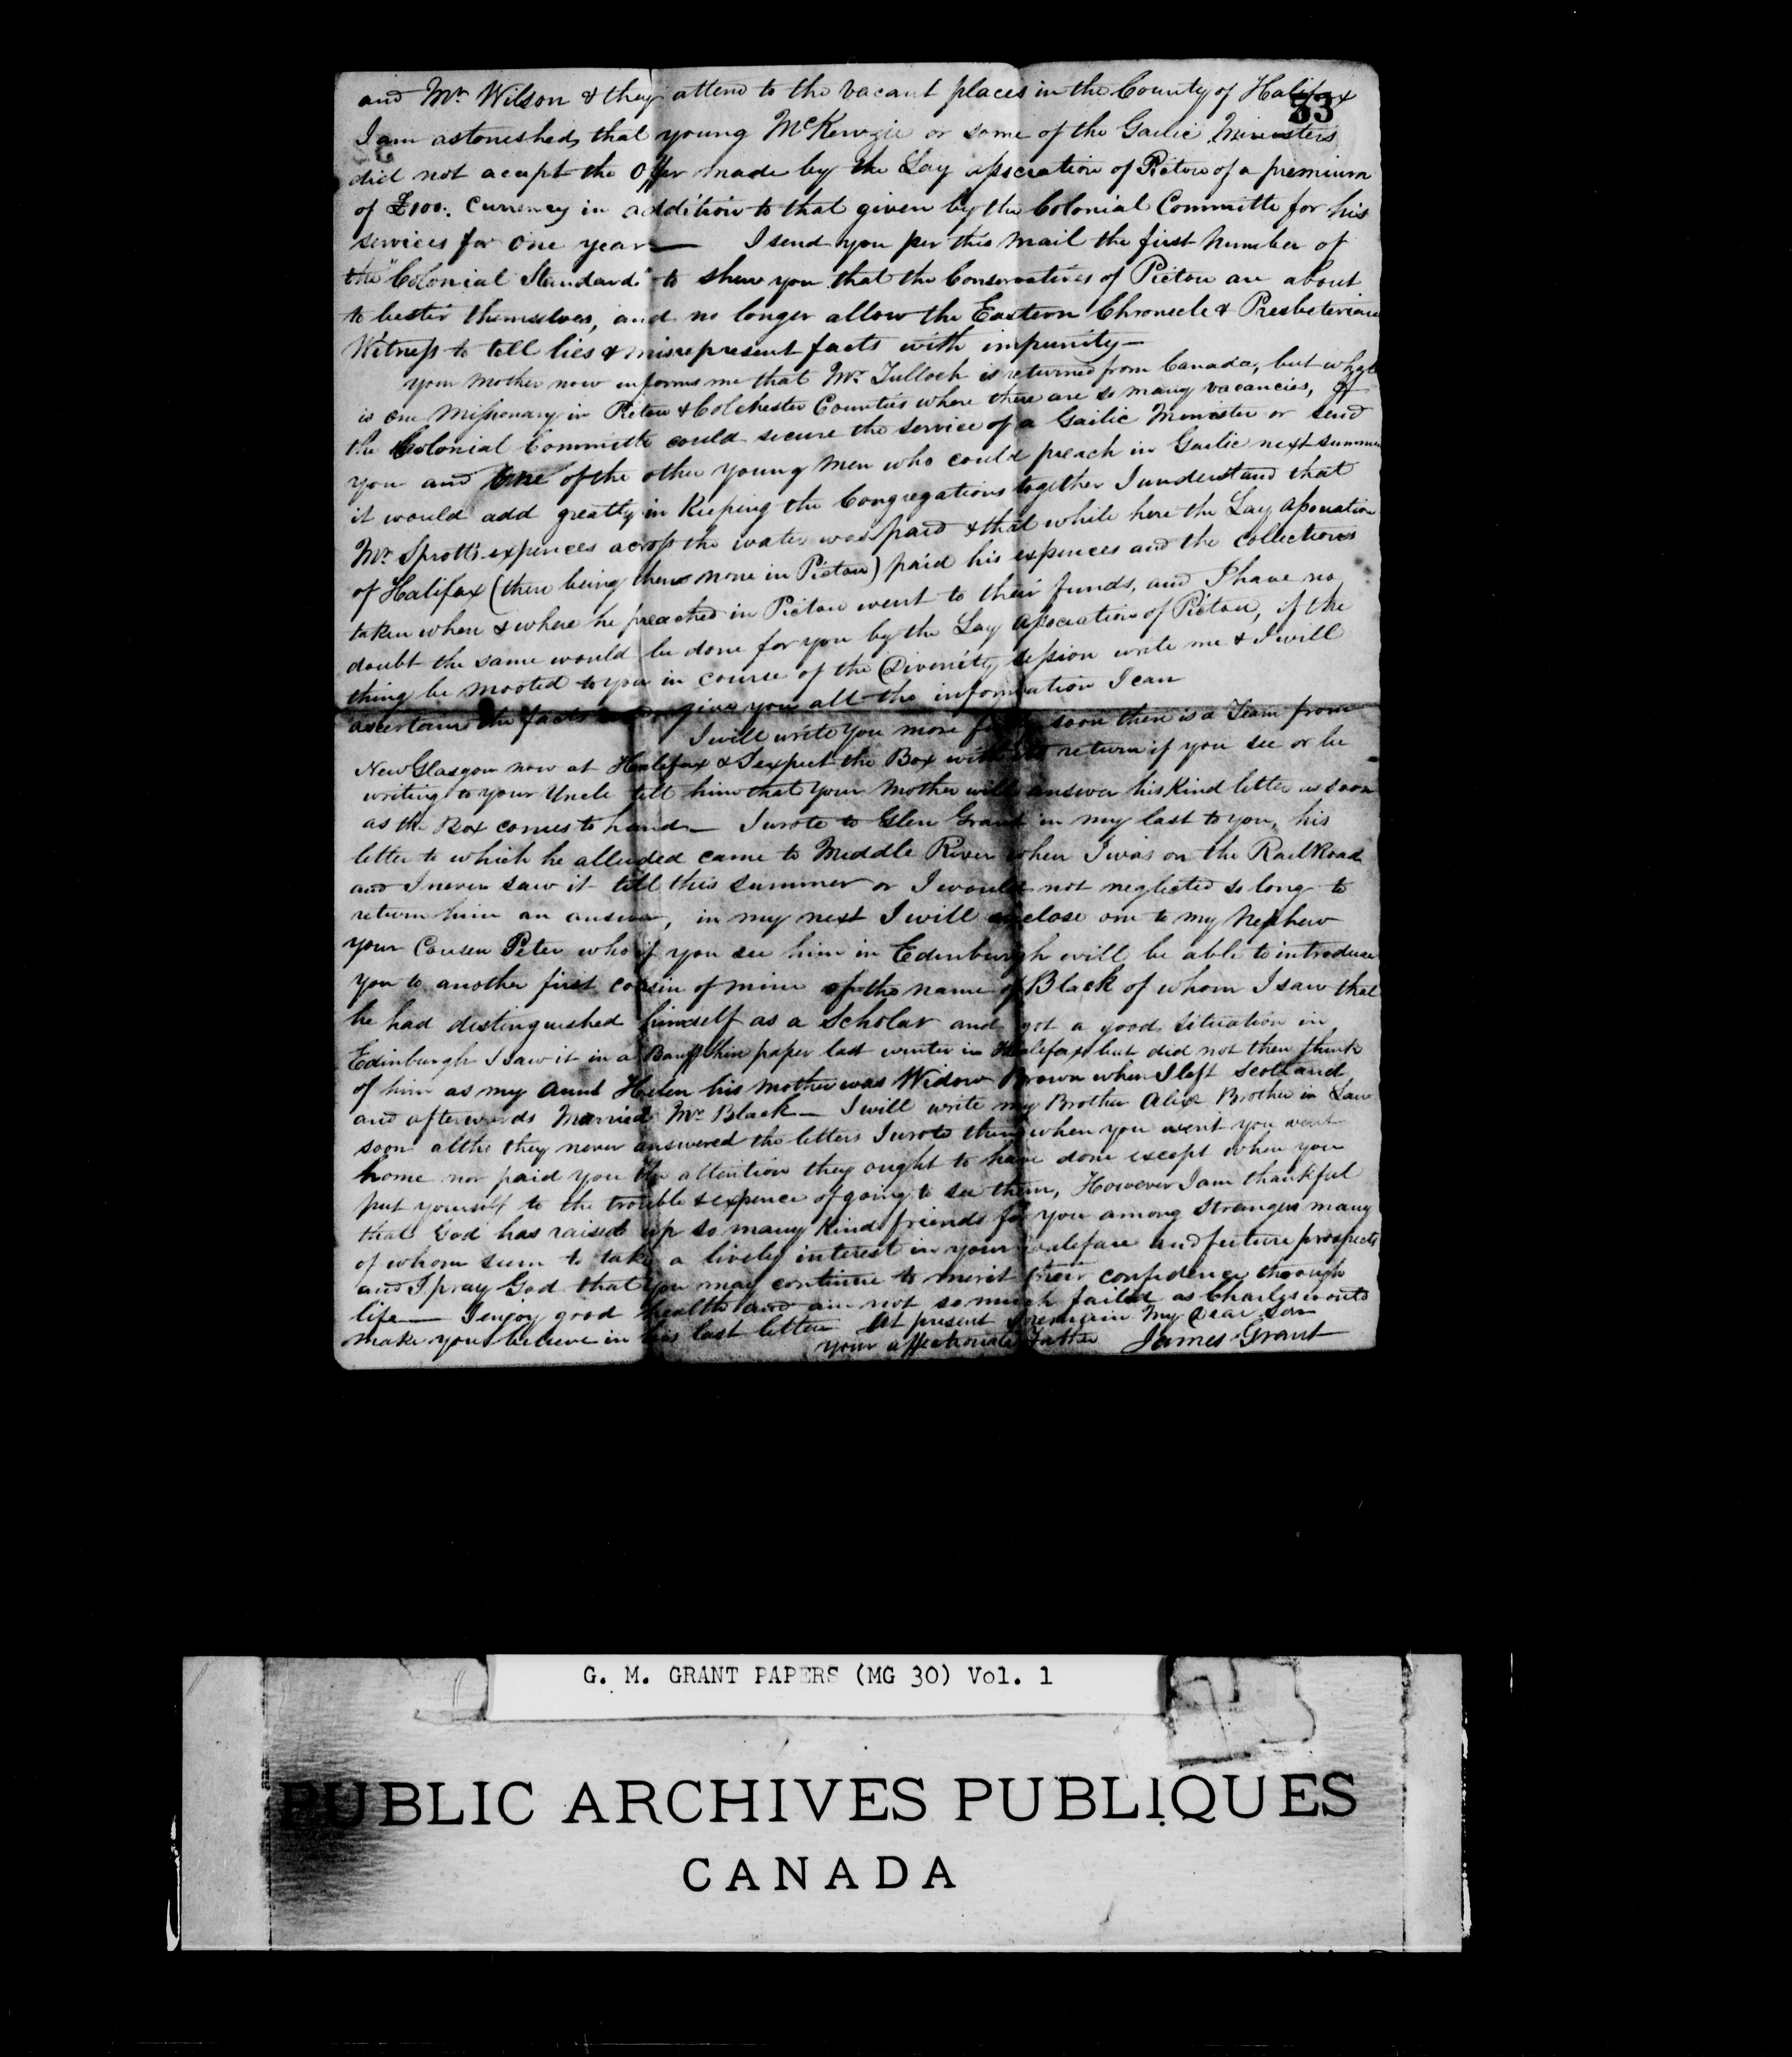 33
and Mr Wilson & they attend to the vacant places in the County of Halifax
I am astonished that young McKenzie or some of the Gaelic Ministers
did not acept the Offer made by the Lay assciation of Pictou of a premium
of £100. Currency in addition to that given by the Colonial Committe for his
services for one year — I send you per this mail the first Number of
the "Colonial Standard" to shew you that the Conservatives of Pictou are about
to bestir themselves, and no longer allow the Eastern Chronecle & Presbeterian
Witness to tell lies & misrepresent facts with impunity —
your Mother now informs me that Mr Tulloch is returned from Canada, but what
is one Missonary in Pictou & Colchester Counties where there are so many vacancies, If
the Colonial Committe could secure the service of a Gailic Minister or send
you and one of the other young men who could preach in Gaelic next summer
it would add greatly in Keeping the Congregations together I understand that
Mr Sprott's expences across the water was paid & that while here the Lay Assosiation
of Halifax (there being then none in Pictou) paid his expences and the collections
taken when & where he preached in Pictou went to their funds, and I have no
doubt the same would be done for you by the Lay Association of Pictou, if the
thing be mooted to you in course of the Divenity session write me & I will
ascertain the facts give you all the information I can
I will write you more soon there is a Team from
New Glasgow now at Halifax & I expect the Box with return if you see or be
writing to your Uncle tell him that your Mother will answer his Kind letter as soon
as the Box comes to hand — I wrote to Glen Grant in my last to you, his
letter to which he alleded came to Middle River when I was on the RailRoad
and I never saw it till this summer or I would not neglected so long to
return him an answer, in my next I will enclose one to my Nephew
your Cousen Peter who if you see him in Edenburgh will be able to introduce
you to another first cousin of mine of the name of Black of whom I saw that
he had destinguished himself as a Scholar and got a good situation in
Edinburgh I saw it in a Banffshire paper last winter in Halifax but did not then think
of him as my Aunt Helen his Mother was Widow Brown when I left Scotland
and afterwards Married Mr Black — I will write my Brother Alixr Brother in Law
soon altho they never answered the letters I wrote them when you went you went
home nor paid you the attention they ought to have done except when you
put yourself to the trouble & expence of going to see them, However I am thankful
that God has raised up so many Kind friends for you among Strangers many
of whom seem to take a lively interest in your walefare and future prospects
and I pray God that you may continue to merit their confidence through
life — I enjoy good health and am not so much failed as Charles would
make you believe in his last letter At present I remain My Dear Son
your affectionate Father James Grant
G. M. GRANT PAPERS (MG 30) Vol. 1
PUBLIC ARCHIVES PUBLIQUES
CANADA